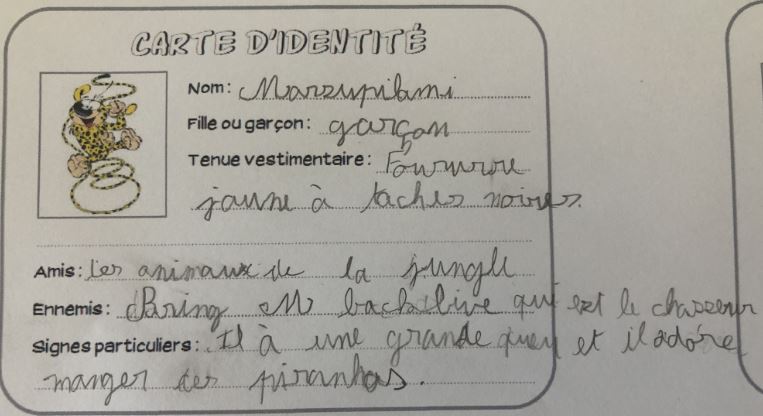 CARTE D'IDENTITÉ
Nom: Marzupilami
Fille ou garçon: garçon
Tenue vestimentaire: Fourrure
jaune à taches noires.
Amis: les animaux de la jungle
Ennemis: Bring M backalive qui est le chasseur
Signes particuliers: Il à une grande queu et il adore
manger des piranhas.